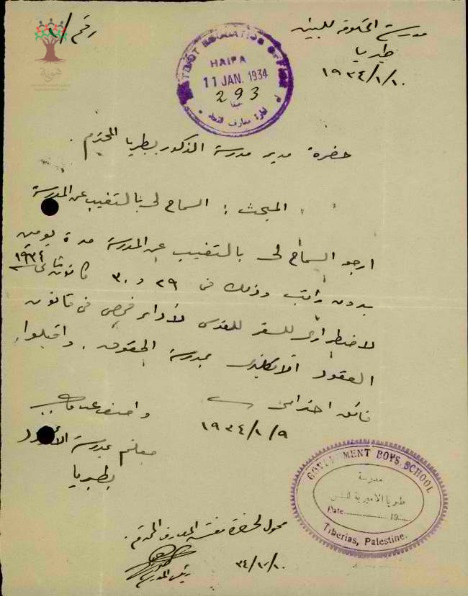 مدرسة الحكومة للبنين
طبريا
١٩٣٤/١/١٠
رقم ١/
DISTRICT EDUCATION OFFICE
HAIFA
11 JAN. 1934
293
حضرة مدير مدرسة الذكور بطبريا المحترم.
المبحث: السماح لي بالتغيب عن المدرسة
ارجو السماح لي بالتغيب عن المدرسة مدة يومين
بدون راتب وذلك في ٢٩ و ٣٠ كانون ثاني ١٩٣٤
لاضطراري للسفر للقدس لأداء فحصي في قانون
العقود الانكليزي بمدرسة الحقوق. واقبلوا
فائق احترامي
١٩٣٤/١/٩
معلم بمدرسة
بطبريا
GOVERNMENT BOYS SCHOOL
مدرسة
طبريا الأميرية
Date 19
Tiberias, Palestine.
محول لحضرة مفتش المعارف المحترم.
٣٤/١/١٠